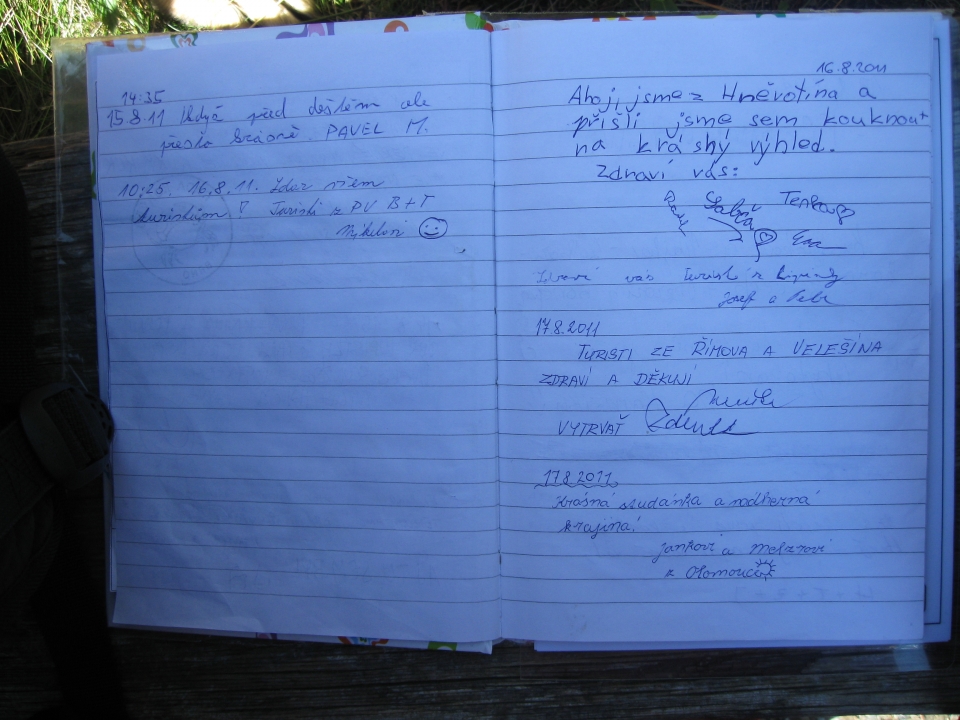 14:35
15.8.11 Když před deštěm ale
přesto krásně. PAVEL M.
10:25, 16.8.11. Zdar všem
turistům! Turisti z PV B+T
16.8.2011
Ahoj, jsme z Hněvotína a
přišli jsme sem kouknout
na krásný výhled.
Zdraví vás:
Terka
Eva
Zdraví vás turisti z
Josef a
17.8.2011
TURISTI ZE ŘÍMOVA A VELEŠÍNA
ZDRAVÍ A DĚKUJÍ
VYTRVAŤ Zdeněk
17.8.2011
Krásná studánka a nádherná
krajina!
Jankovi a Melzrovi
z Olomouce